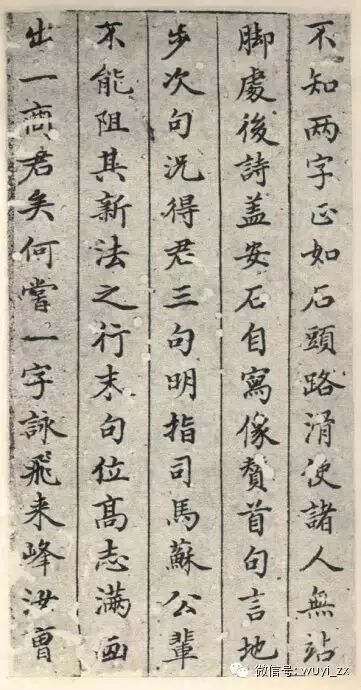 不知两字正如石頭路滑使諸人無站
脚處後詩盖安石自寫像贊首句言地
步次句況得君三句明指司馬蘇公輩
不能阻其新法之行末句位高志满画
出一商君矣何嘗一字詠飛来峰汝曹
微信号: wuyi_zx